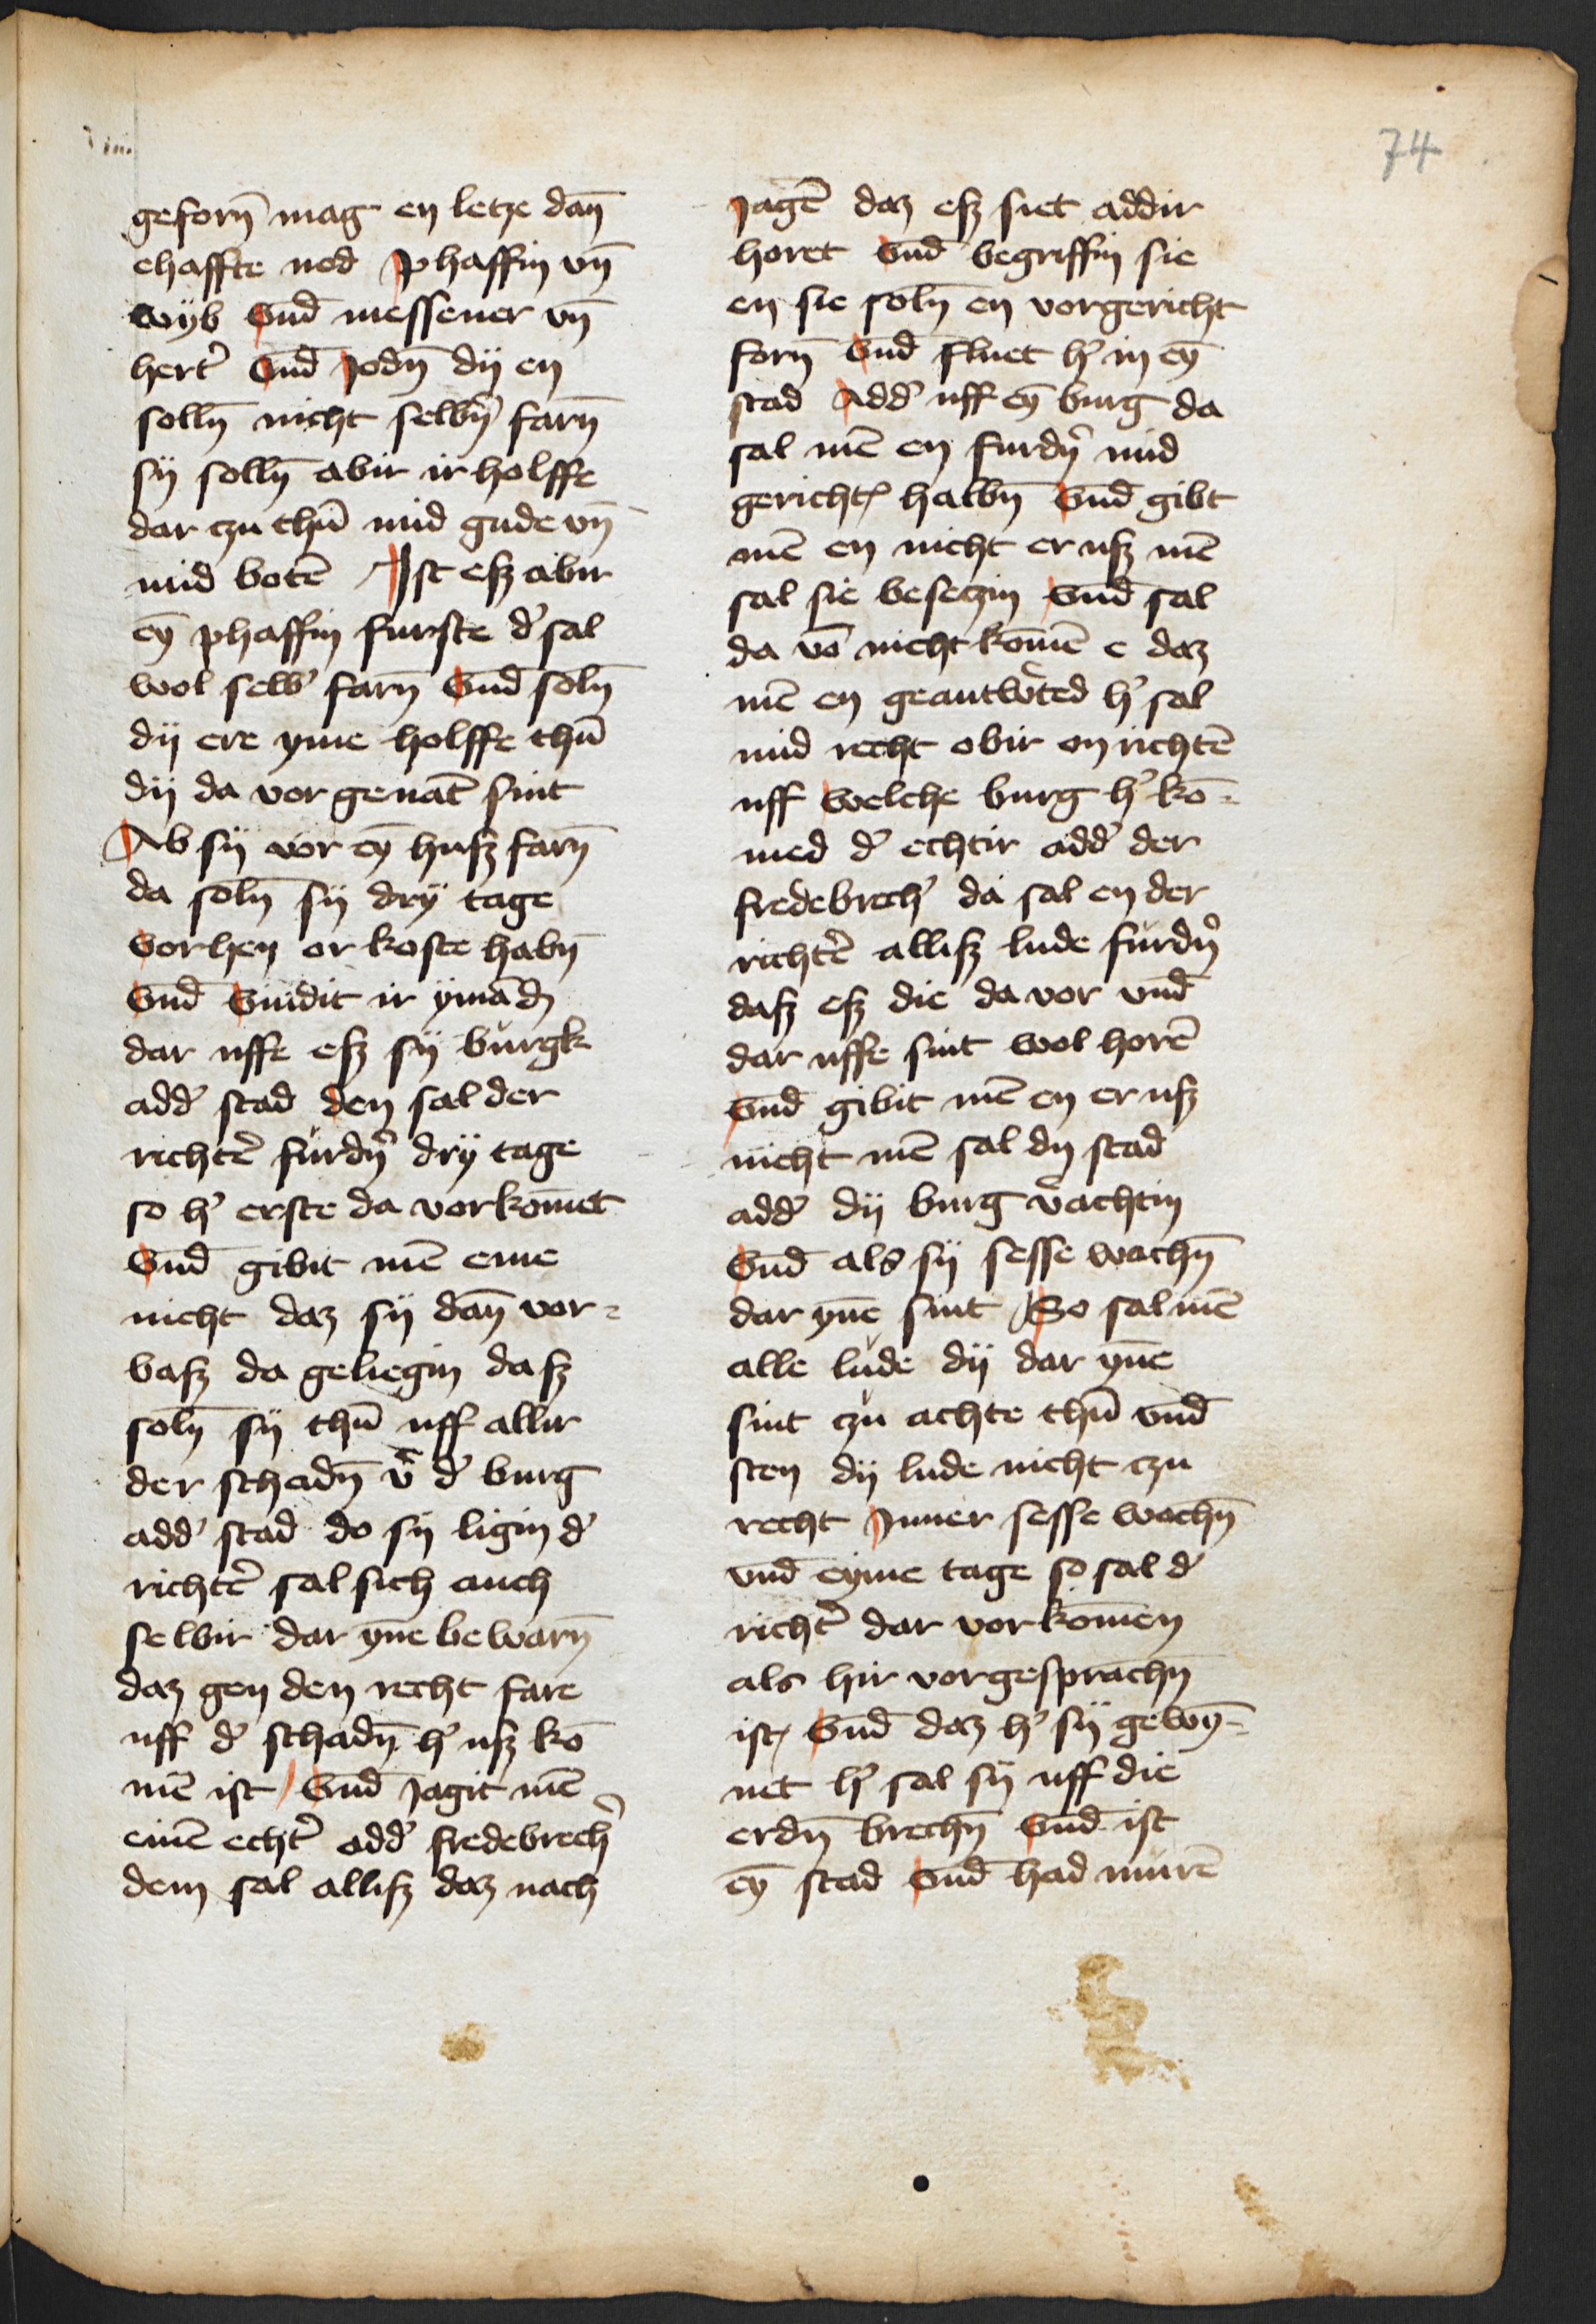 74
geforn̄ mag en letze dan̄
ehaffte nod Phaffin vn̄
wyb Vnd̄ messener vn̄
hert᷑ Vnd̄ Jodn̄ dÿ en
solln̄ nicht selbn̄ farn̄
sÿ solln̄ abir ir holffe
dar czu thū mid gude vn̄
mid botē Ist esz abir
eȳ phaffin furste d᷑ sal
wol selb᷑ farn̄ Vnd̄ soln̄
dÿ ere yme holffe thū
dÿ da vor genāt sint
Ab sÿ vor eȳ husz farn̄
da soln̄ sÿ drÿ tage
Vorhen or koste habn̄
Vnd̄ Vindit ir ymād
dar uffe esz sÿ burgk
add᷑ stad den sal der
richt᷑ furdn᷑ drÿ tage
so h᷑ erste da vor kom̄et
Vnd̄ gibit mē eme
nicht daz sÿ dan̄ vor=
basz da geliegin dasz
soln̄ sÿ thū uff allir
der schadn̄ v̄ d᷑ burg
add᷑ stad do sÿ ligin d᷑
richt᷑ sal sich auch
selbir dar yn̄e bewarn̄
daz gen den recht fare
uff d᷑ schadn̄ h᷑ usz kō
mē ist Vnd̄ Jagit mē
einē echt᷑ add᷑ fredebrech᷑
dem sal allisz daz nach
Jagē daz esz siet addir
horet Vnd̄ begriffin sie
en sie soln̄ en vorgericht
forn̄ Vnd̄ fluet h᷑ in eȳ
stad Add᷑ uff eȳ burg da
sal mē en furdn᷑ mid
gericht᷑ halbn̄ Vnd̄ gibt
mē en nicht er usz mē
sal sie beseczin Vnd̄ sal
da vō nicht kom̄ē e daz
mē en geantw᷑ted h᷑ sal
mid recht obir on richtē
uff welche burg h᷑ kō=
med d᷑ echtir add᷑ der
fredebrech᷑ da sal en der
richt᷑ allisz lude furdn᷑
dasz esz die da vor vnd̄
dar uffe sint wol horē
Vnd̄ gibit mē en er usz
nicht mē sal dy stad
add᷑ dÿ burg v᷑achtin
Vnd̄ als sÿ sesse wochn̄
dar yn̄e sint So sal mē
alle lude dÿ dar yn̄e
sint czu achte thū vnd̄
sten dÿ lude nicht czu
recht Jnner sesse wochn̄
vnd̄ eyme tage so sal d᷑
richt᷑ dar vor kom̄en
als hir vorgesprachn̄
ist Vnd̄ daz h᷑ sÿ gewȳ=
net h᷑ sal sÿ uff die
erdn̄ brechn̄ Vnd̄ ist
eȳ stad Vnd̄ had murē